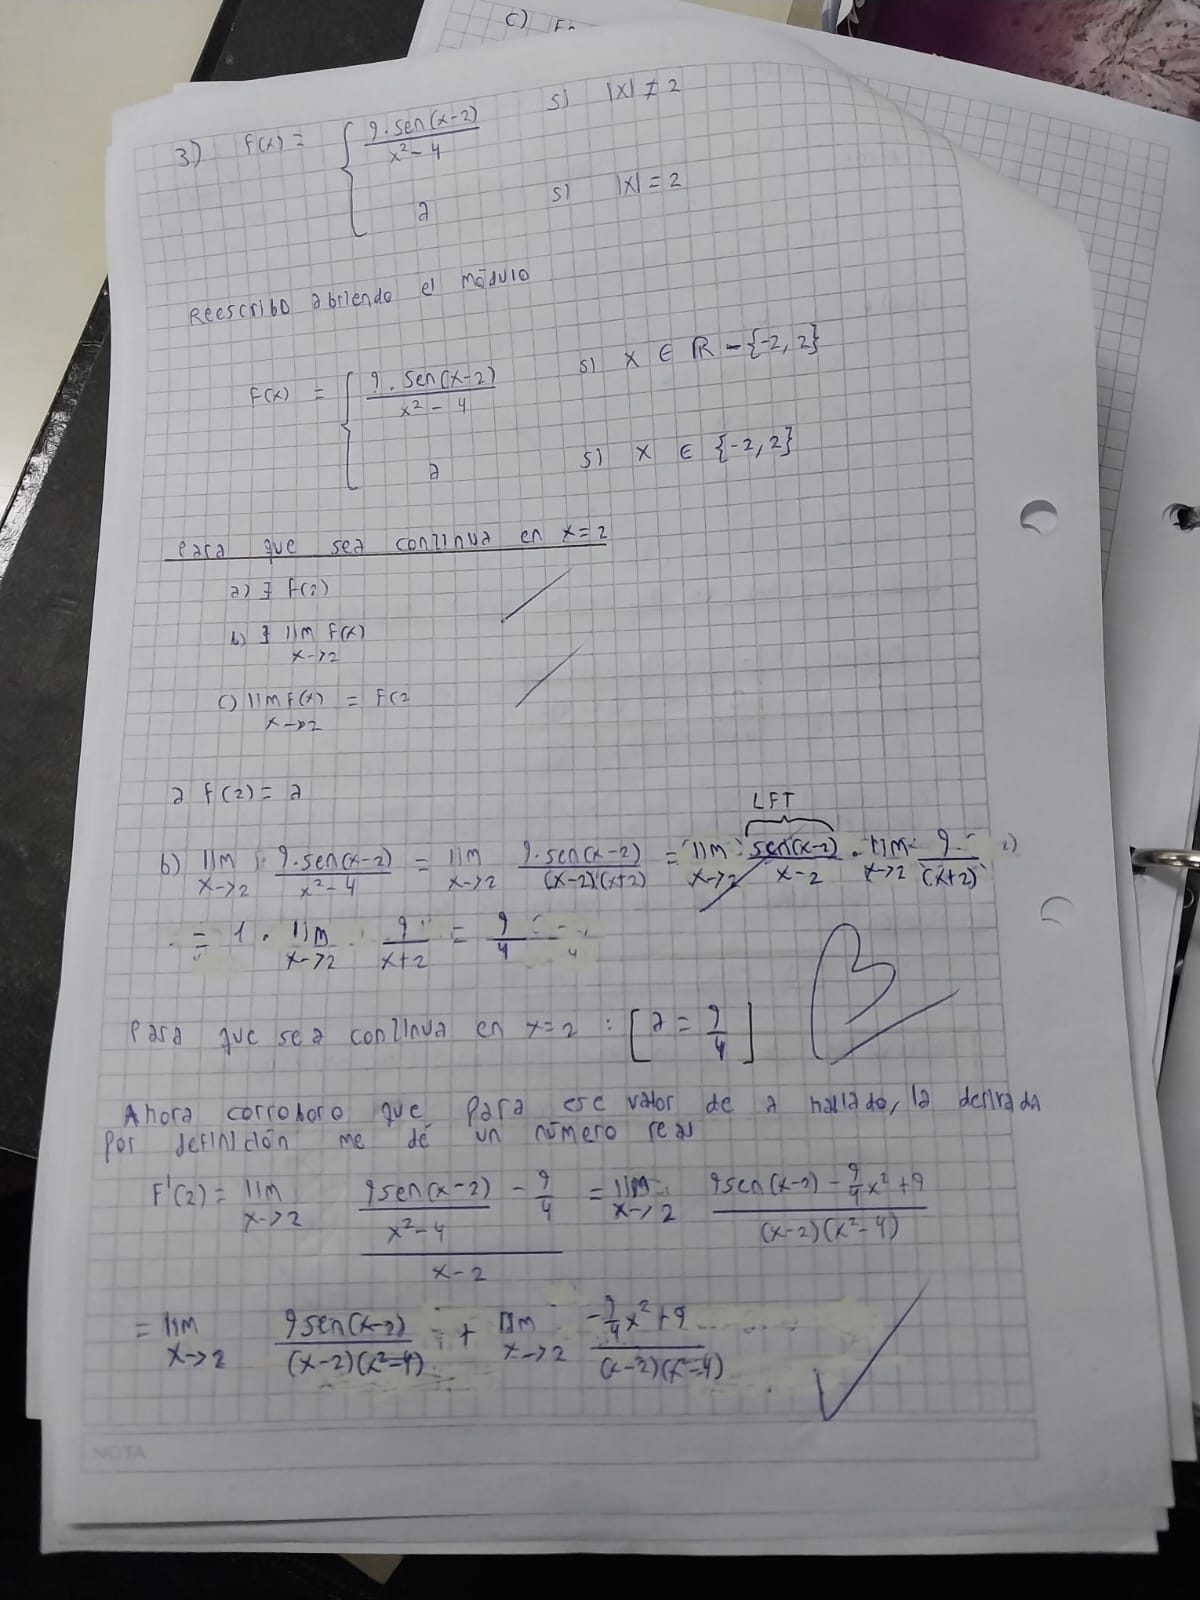 c)
3) F(x) = { 9.sen(x-2) / x² - 4 si |x| ≠ 2
a si |x| = 2
Reescribo abriendo el módulo
F(x) = { 9. sen(x-2) / x² - 4 si x ∈ ℝ - {-2, 2}
a si x ∈ {-2, 2}
Para que sea continua en x=2
a) ∃ F(2)
b) ∃ lim x->2 F(x)
c) lim x->2 F(x) = F(2
a F(2) = a
LFT
b) lim x->2 9.sen(x-2) / x²-4 = lim x->2 9.sen(x-2) / (x-2)(x+2) = lim x->2 sen(x-2) / x-2 . lim x->2 9 / (x+2)
= 1 . lim x->2 9 / x+2 = 9/4
Para que sea continua en x=2 : [a = 9/4]
B
Ahora corroboro que para ese valor de a hallado, la derivada
por definición me dé un número real
F'(2) = lim x->2 (9sen(x-2) / x²-4 - 9/4) / x-2 = lim x->2 9sen(x-2) - 9/4 x² + 9 / (x-2)(x²-4)
= lim x->2 9sen(x-2) / (x-2)(x²-4) + lim x->2 -9/4 x² + 9 / (x-2)(x²-4)
NOTA